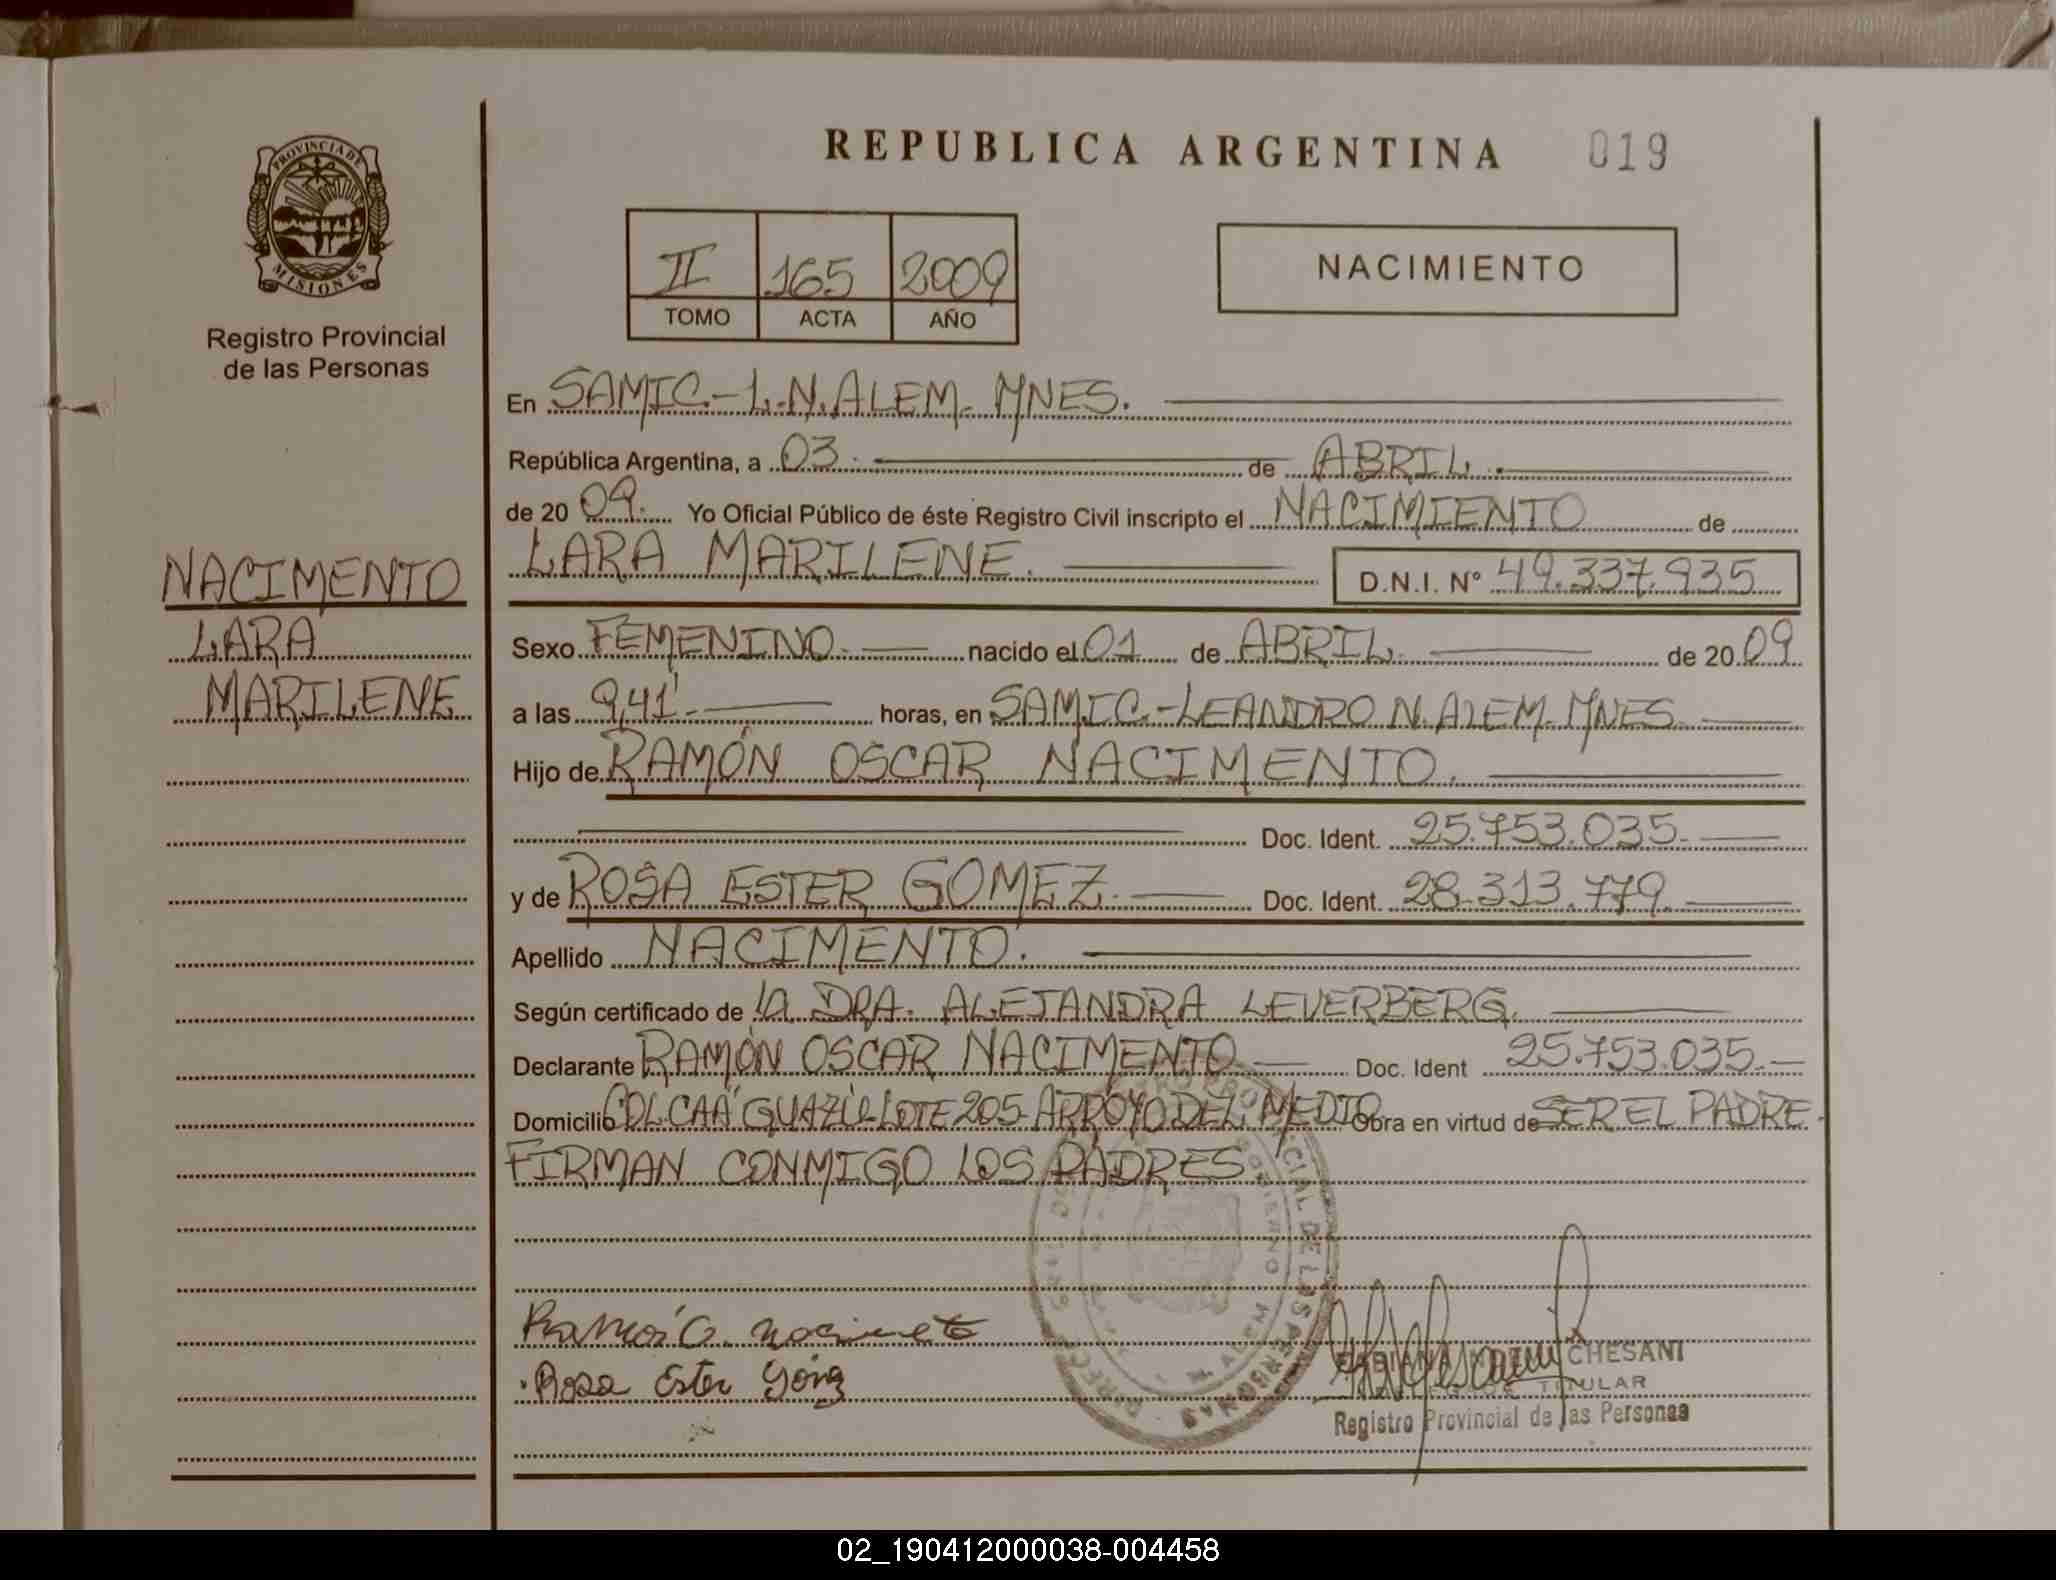 REPUBLICA ARGENTINA 019
PROVINCIA DE
MISIONES
Registro Provincial
de las Personas
II 165 2009
TOMO ACTA AÑO
NACIMIENTO
En SAMIC.-L.N.ALEM. MNES.
República Argentina, a 03. de ABRIL.
de 2009. Yo Oficial Público de éste Registro Civil inscripto el NACIMIENTO de
LARA MARILENE. D.N.I. Nº 49.337.935
NACIMENTO
LARA
MARILENE
Sexo FEMENINO. nacido el 01 de ABRIL. de 2009
a las 9,41'. horas, en SAMIC.-LEANDRO N. ALEM. MNES.
Hijo de RAMÓN OSCAR NACIMENTO.
Doc. Ident. 25.753.035.
y de ROSA ESTER GOMEZ. Doc. Ident. 28.313.779.
Apellido NACIMENTO.
Según certificado de la DRA. ALEJANDRA LEVERBERG.
Declarante RAMÓN OSCAR NACIMENTO Doc. Ident 25.753.035.
Domicilio COL.CAÁ GUAZÚ-LOTE 205-ARROYO DEL MEDIO Obra en virtud de SER EL PADRE.
FIRMAN CONMIGO LOS PADRES
Ramón O. nacimeto
Rosa Ester
CHESANI
TITULAR
Registro Provincial de las Personas
PROVINCIAL DE LAS PERSONAS
02_190412000038-004458